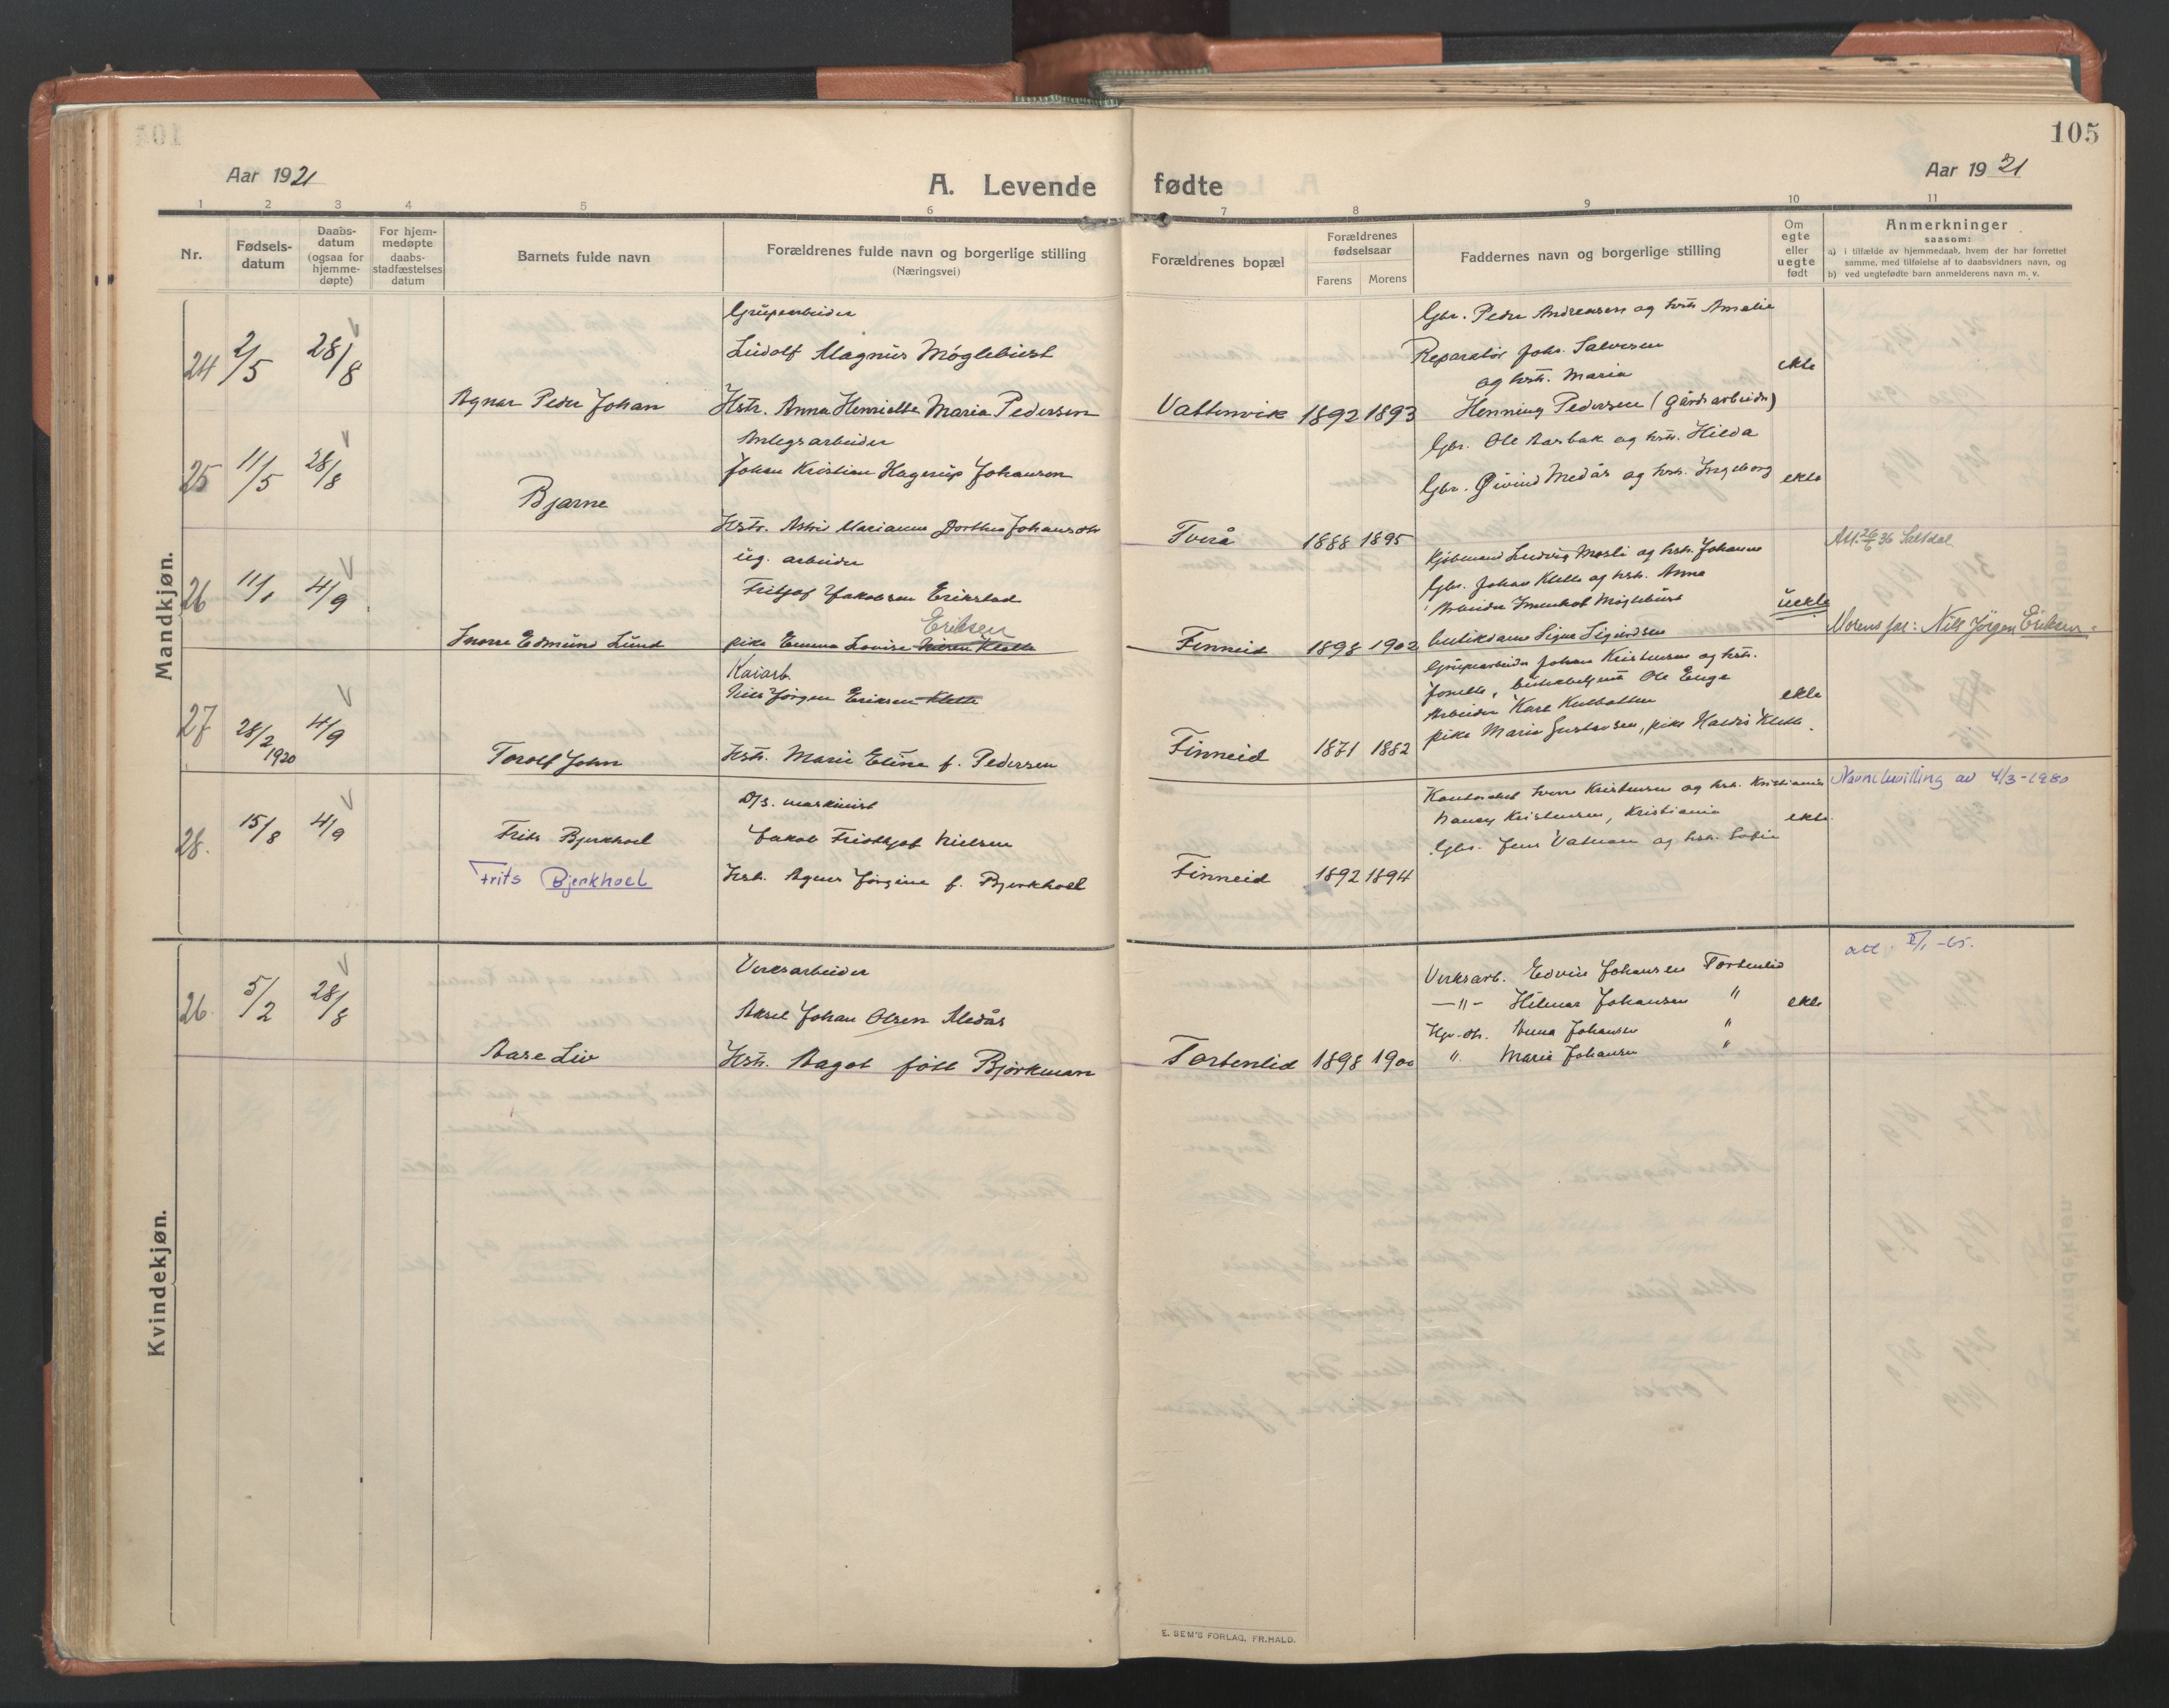 105
Aar 1921
A. Levende fødte
Aar 1921
1 2 3 4 5 6 7 8 9 10 11
Nr.
Fødsels-
datum
Daabs-
datum
(ogsaa for
hjemme-
døpte)
For hjem-
medøpte
daabs-
stadfæstelses
datum
Barnets fulde navn
Forældrenes fulde navn og borgerlige stilling
(Næringsvei)
Forældrenes bopæl
Forældrenes
fødselsaar
Farens Morens
Faddernes navn og borgerlige stilling
Om
egte
eller
uegte
født
Anmerkninger
saasom:
a) i tilfælde av hjemmedaab, hvem der har forrettet
samme, med tilføielse af to daabsvidners navn, og
b) ved uegtefødte barn anmelderens navn m. v.
Mandkjøn.
24 2/5 28/8
Agnar Peder Johan
Grubearbeider
Ludolf Magnus Møglebust
Hstr. Anna Henriette Maria Pedersen
Vattenvik 1892 1893
Gbr. Peder Andreassen og hstr. Amalie
Reparatør Johs. Salvesen
og hstr. Maria
Henning Pedersen (Gårdsarbeider)
ekte
25 11/5 28/8
Bjarne
Anlegsarbeider
Johan Kristian Hagerup Johansen
Hstr. Astrid Marianne Dorthea Johansdtr
Tverå 1888 1895
Gbr. Ole Aasbak og hstr. Hilda
Gbr. Øivind Medås og hstr. Ingeborg
ekte
26 11/1 4/9
Snorre Edmund Lund
ug. arbeider
Fritjof Jakobsen Erikstad
Eriksen
pike Emma Lovise Klette
Finneid 1898 1902
Kjøbmand Ludvig Mosti og hstr. Johanne
Gbr. Johan Klette og hstr. Anna
Arbeider Møglebust
butikdame Signe Sigurdsen
uekte
Att. 36 Saltdal
Morens far: Nils Jörgen Eriksen
27 28/2 1920 4/9
Torolf John
Kaiarb.
Nils Jørgen Eriksen Klette
Hstr. Marie Eline f. Pedersen
Finneid 1871 1882
Grubearbeider Johan Kristensen og hstr.
Ole Enge
Arbeider Karl
pike Marie Gustavsen, pike Haldis Klette.
ekte
28. 15/8 4/9
Frits Bjerkhoel
Frits Bjerkhoel
D/s. maskinist
Jakob Fridthjof Nielsen
Hstr. Agnes Jørgine f. Bjerkhoel
Finneid 1892 1894
Kontorchef Sverre Kristensen og hstr. Kristiania
Nancy Kristensen, Kristiania
Gbr. Jens Vatnan og hstr. Sofie
ekte
Navnebevilling av 4/3-1980
Kvindekjøn.
26. 5/2 28/8
Aase Liv
Verksarbeider
Aksel Johan Olsen Medås
Hstr. Aagot født Björkman
Tortenlid 1898 1900
Verksarb. Edvin Johansen Tortenlid
—"— Hilmar Johansen "
Hgv. dtr. Anna Johansen "
" Marie Johansen "
ekte
att. -65.
E. SEM'S FORLAG, FR.HALD.